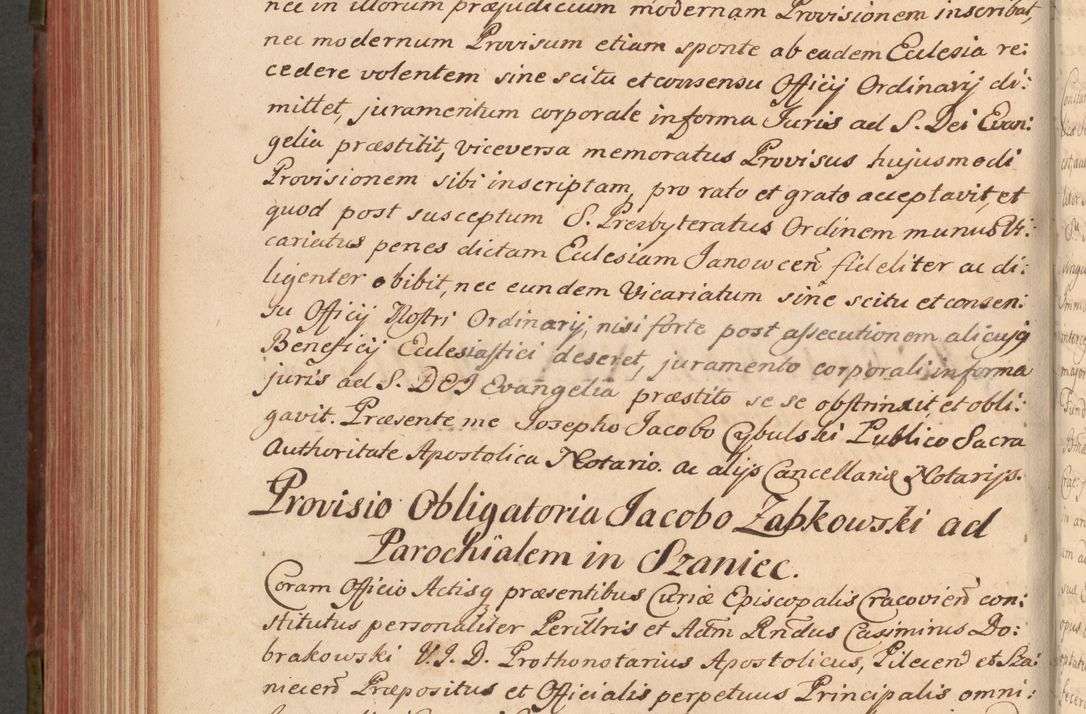 nec in illorum præjudicium modernam Provisionem inscribat,
nec modernum Provisum etiam sponte ab eadem Ecclesia re:
cedere volentem sine scitu et consensu Officij Ordinarij di:
mittet, juramentum corporale in forma Juris ad S. Dei Evan:
gelia præstitit, viceversa memoratus Provisus hujusmodi
Provisionem sibi inscriptam, pro rato et grato acceptavit, et
quod post susceptum S. Presbyteratus Ordinem munus Vi:
cariatus penes dictam Ecclesiam Janowcen̄ fideliter ac di:
ligenter obibit, nec eundem Vicariatum sine scitu et consen:
su Officij Nostri Ordinarij, nisi forte post assecutionem alicujq
Beneficij Ecclesiastici deseret, juramento corporali in forma
juris ad S. DEI Evangelia præstito se se obstrinxit, et obli:
gavit. Præsente me Josepho Jacobo Cybulski Publico Sacra
Authoritate Apostolica Notario. ac alijs Cancellariæ Notarijs.
Provisio Obligatoria Jacobo Ząbkowski ad
Parochialem in Szaniec.
Coram Officio Actisq præsentibus Curiæ Episcopalis Cracovien̄ con:
stitutus personaliter Perillr̄is et Adm̄ Rn̄dus Casimirus Do:
brakowski V. J. D. Prothonotarius Apostolicus, Pilecen̄ et Sza:
niecen̄ Præpositus et Officialis perpetuus Principalis omni: